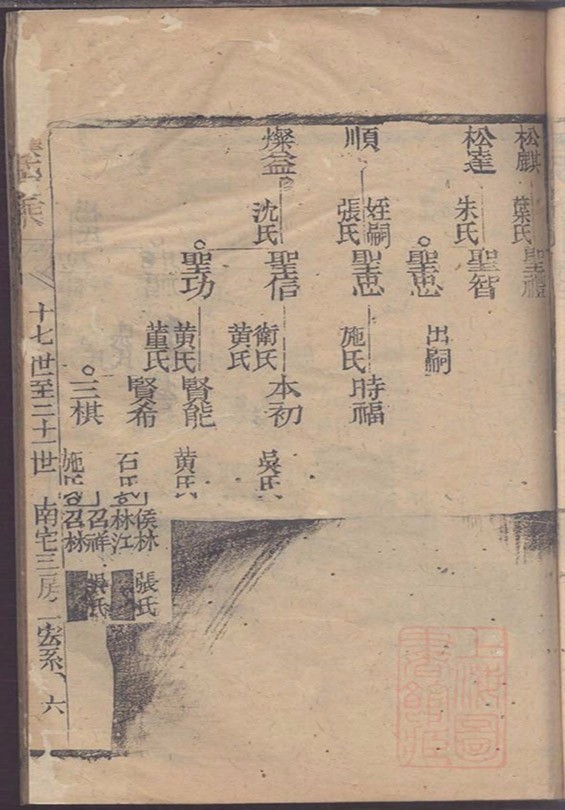 松麒
葉氏
聖禮
松達
朱氏
聖智
聖思
出嗣
順
姪嗣
張氏
聖思
施氏
時福
燦益
沈氏
聖信
衛氏
黄氏
本初
吳氏
聖功
黄氏
董氏
賢能
黄氏
賢希
石氏
侯林
張氏
林江
三棋
施氏
召祥
吳氏
召林
十七世至二十一世
南宅三房二宏系
六
上海圖
書館藏